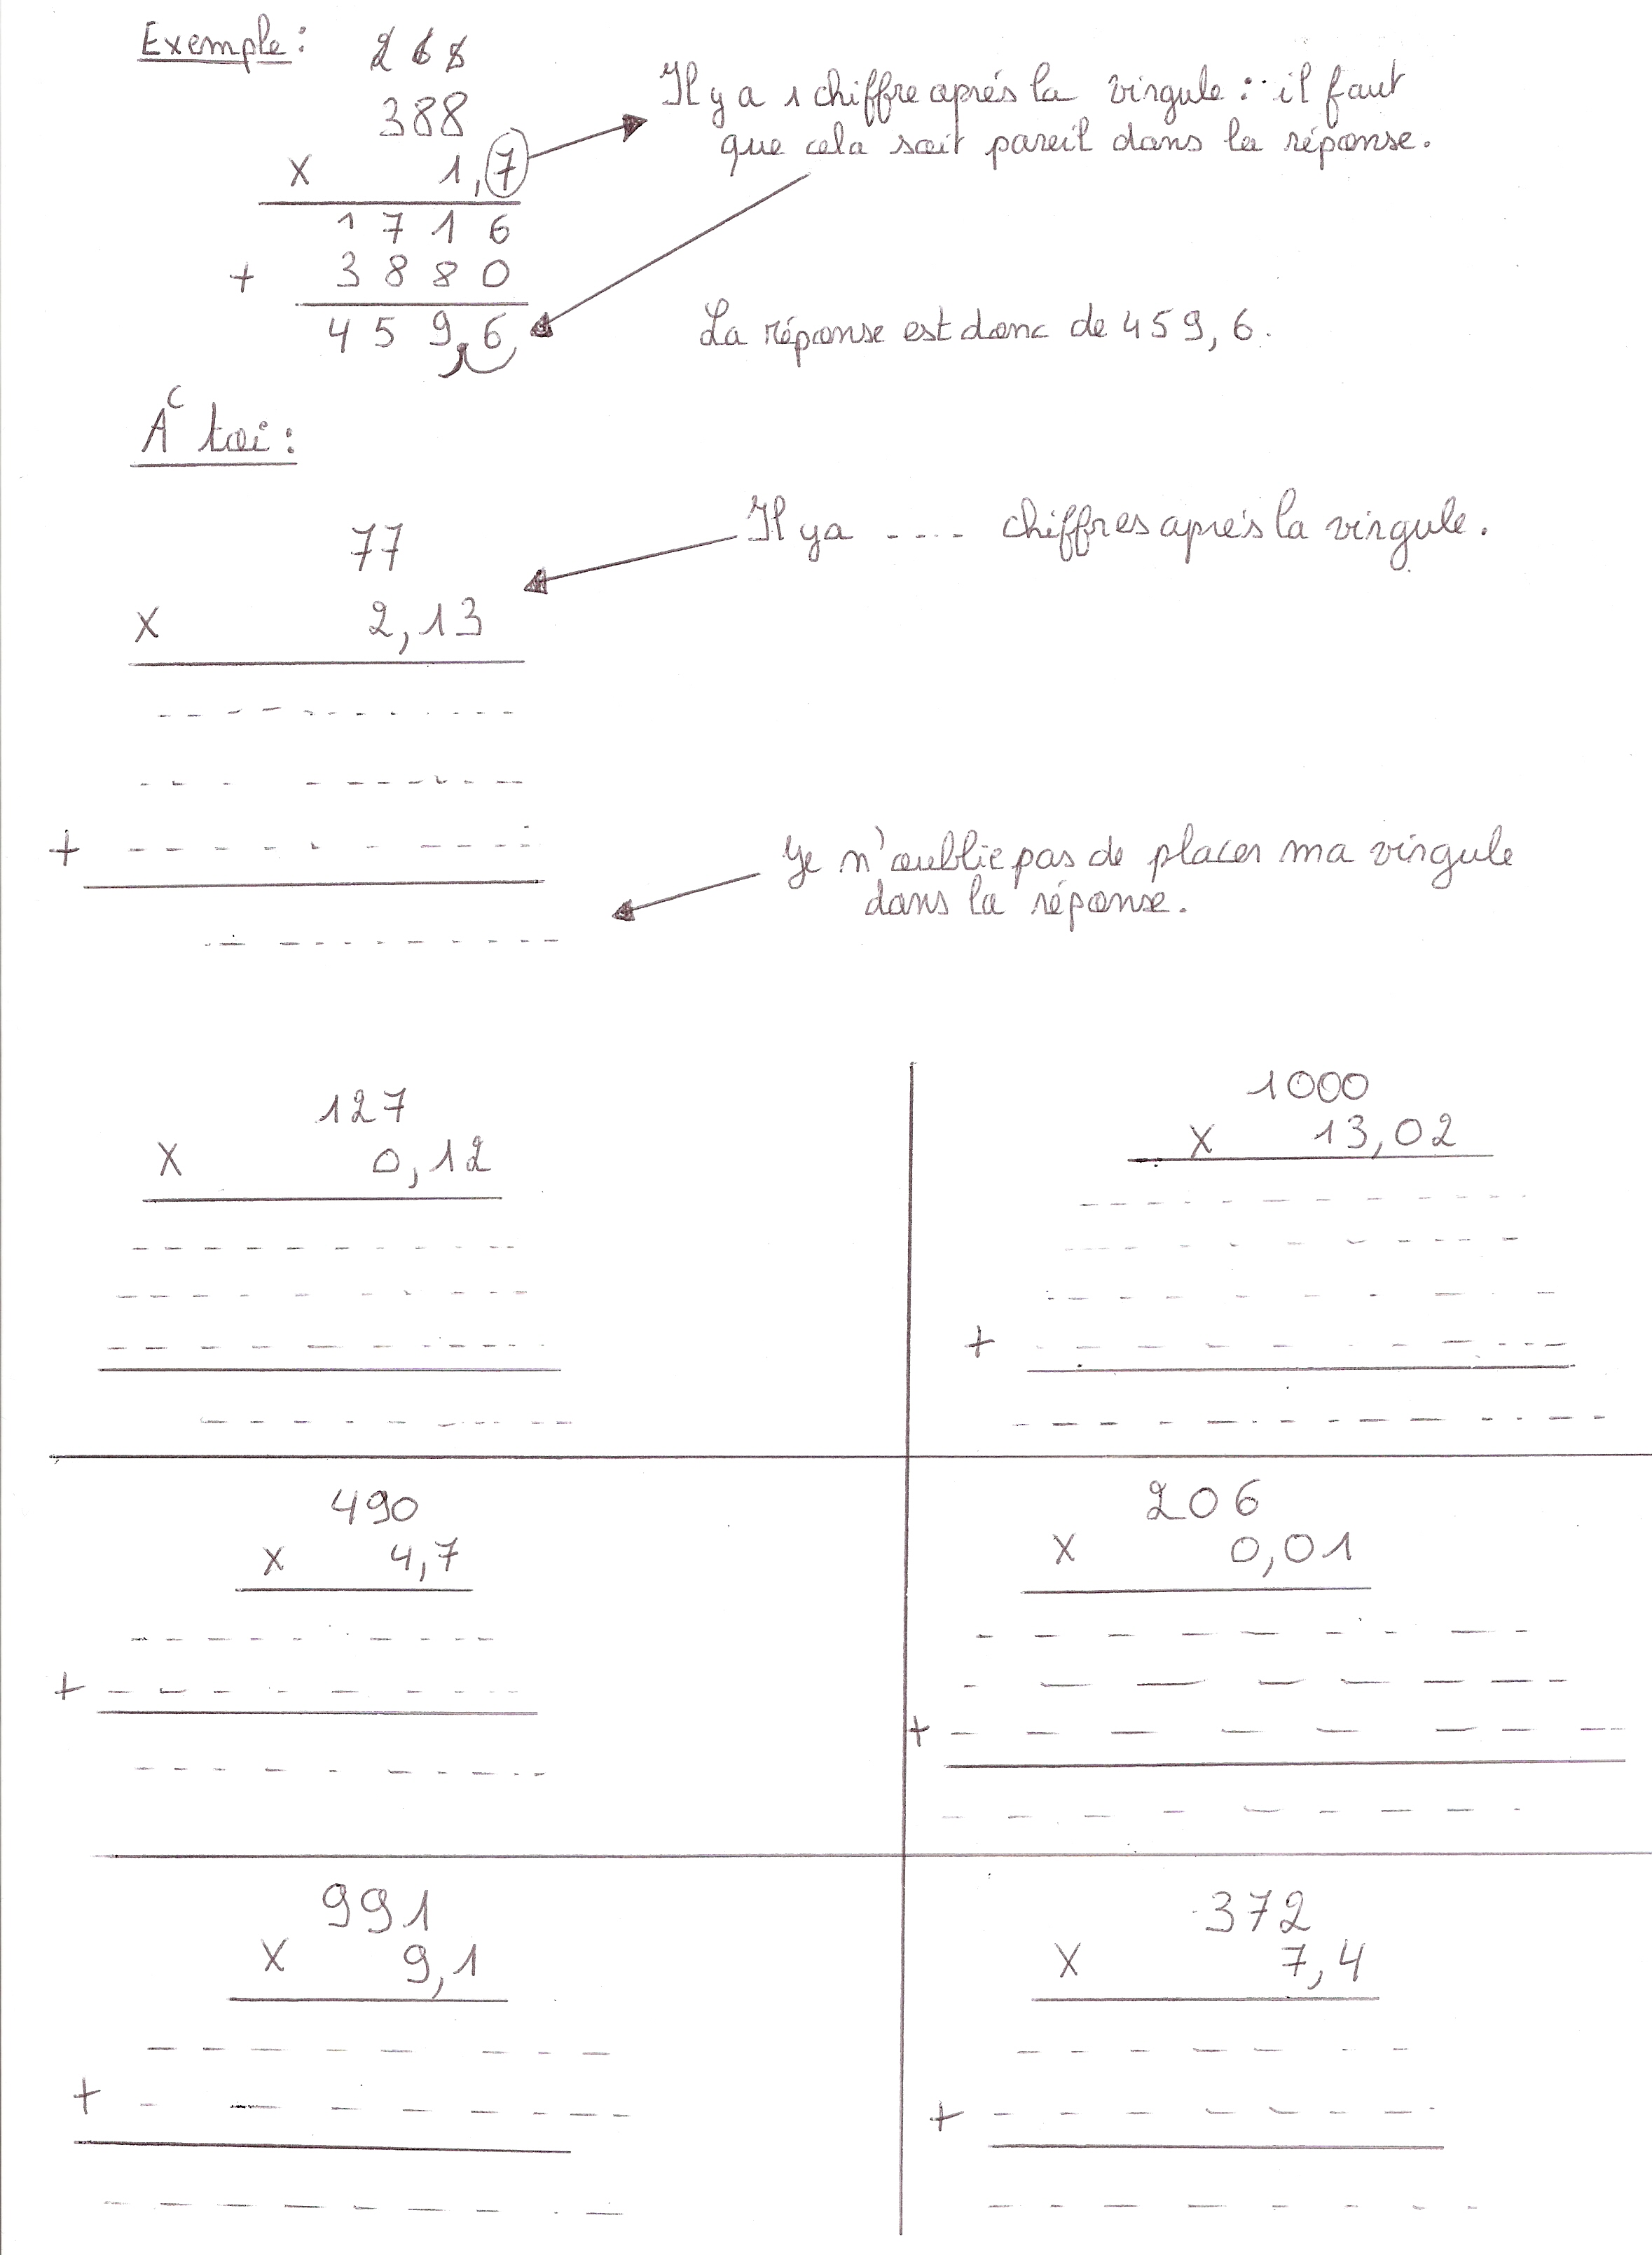 Exemple :
2 6 5
388
x 1,7
1 7 1 6
+ 3 8 8 0
4 5 9, 6
Il y a 1 chiffre après la virgule : il faut
que cela soit pareil dans la réponse.
La réponse est donc de 459,6.
A toi :
77
x 2,13
Il y a .... chiffres après la virgule.
+
Je n'oublie pas de placer ma virgule
dans la réponse.
127
x 0,12
1000
x 13,02
+
490
x 4,7
+
206
x 0,01
+
991
x 9,1
+
372
x 7,4
+